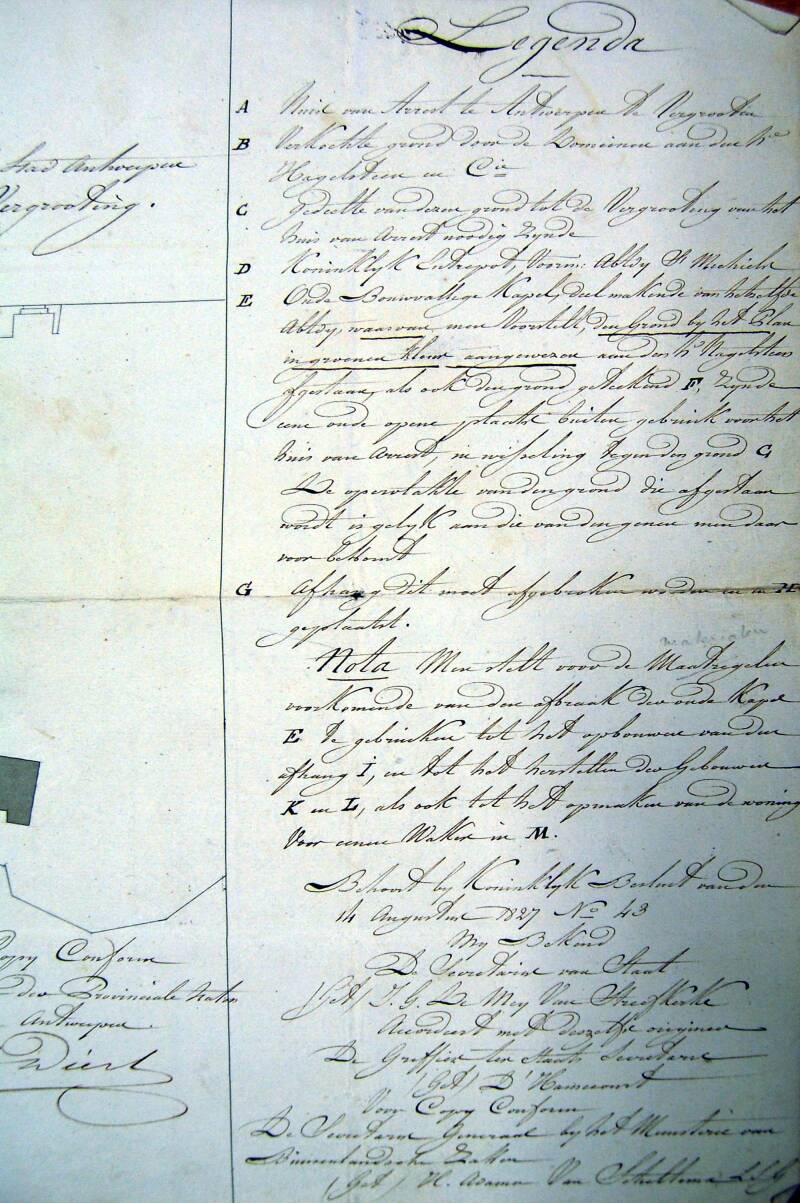 Legenda
A Huis van Arrest te Antwerpen te Vergrooten
B Verkochte grond door de Domeinen aan den Hr
Hagelsteen en Cie
C Gedeelte van dezen grond tot de Vergrooting van het
huis van arrest noodig Zynde
D Koninklyk Entrepot, Voorm: Abtdy St Mechiels
E Oude Bouwvallege Kapel, deel makende van hetzelfde
Abtdy, waarvan men Voorstelt, den Grond by het Plan
in groenen kleur aangewezen aan den Hr Hagelsteen
afgestaan, als ook den grond geteekend F, Zynde
eene oude opene plaats buiten gebruik voor het
huis van Arrest, in wisseling tegen den grond C
De opervlakte van den grond die afgestaan
wordt is gelyk aan die van den genen men daar
voor bekomt
G Afhang dit moet afgebroken worden en in H
geplaatst.
Nota Men stelt voor de Maatregelen
materialen
voorkomende van den afbraak der oude Kapel
E te gebruiken tot het opbouwen van den
afhang I, en tot het herstellen der Gebouwen
K en L, als ook tot het opmaken van de woning
Voor eenen Waker in M.
Behoort by Koninklyk Besluit van den
14 Augustus 1827 No 43
My Bekend
De Secretaris van Staat
(Get) J. G. De Mey Van Streefkerke
Accordeert met deszelfs origineel
De Greffier ter Staats Secretarie
(Get) D'Hamecourt
Voor Copy Conform
De Secretaris Generaal by het Ministerie van
Binnenlandsche Zaken
(Get) H. Van Scheltema L.S.G
Stad Antwerpen
Vergrooting.
Copy Conform
der Provinciale Staten
Antwerpen.
Diert